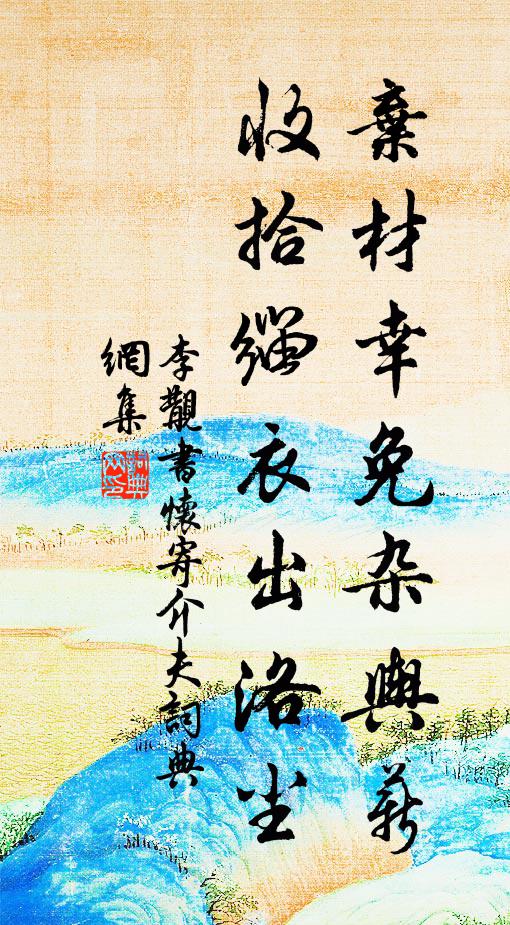 棄材幸免杂輿薪
收拾緇衣出洛尘
李覯書懷寄介夫詞典
網集
詞典